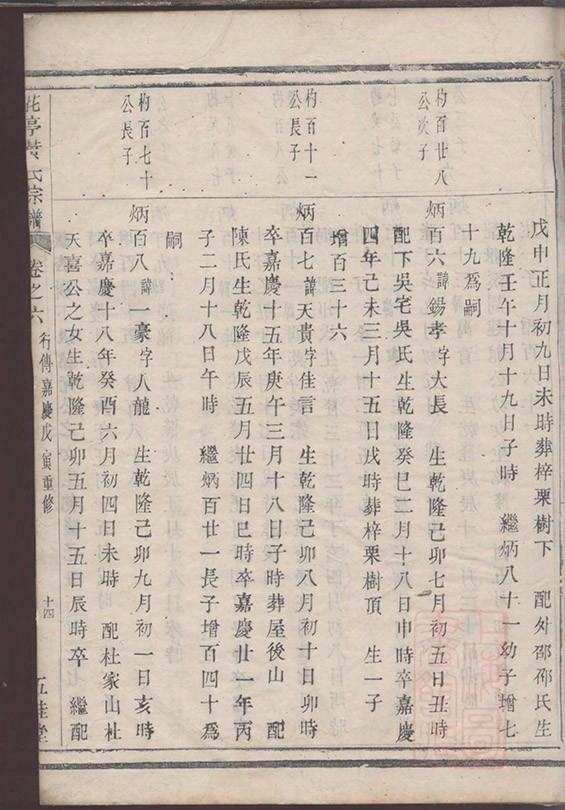 戊申正月初九日未時葬梓栗樹下　配外邵邵氏生
乾隆壬午十月十九日子時　繼炳八十一幼子增七
十九為嗣
杓百廿八
公次子
炳百六諱錫孝字大長　生乾隆己卯七月初五日丑時
配下吳宅吳氏生乾隆癸巳二月十八日申時卒嘉慶
四年己未三月十五日戌時葬梓栗樹頂　生一子
增百三十六
杓百十一
公長子
炳百七諱天貴字佳言　生乾隆己卯八月初十日卯時
卒嘉慶十五年庚午三月十八日子時葬屋後山　配
陳氏生乾隆戊辰五月廿四日巳時卒嘉慶廿一年丙
子二月十八日午時　繼炳百廿一長子增百四十為
嗣
杓百七十
公長子
炳百八諱一豪字人龍　生乾隆己卯九月初一日亥時
卒嘉慶十八年癸酉六月初四日未時　配杜家山杜
天喜公之女生乾隆己卯五月十五日辰時卒　繼配
花亭黃氏宗譜　卷之六　行傳嘉慶戊寅重修　十四　五桂堂